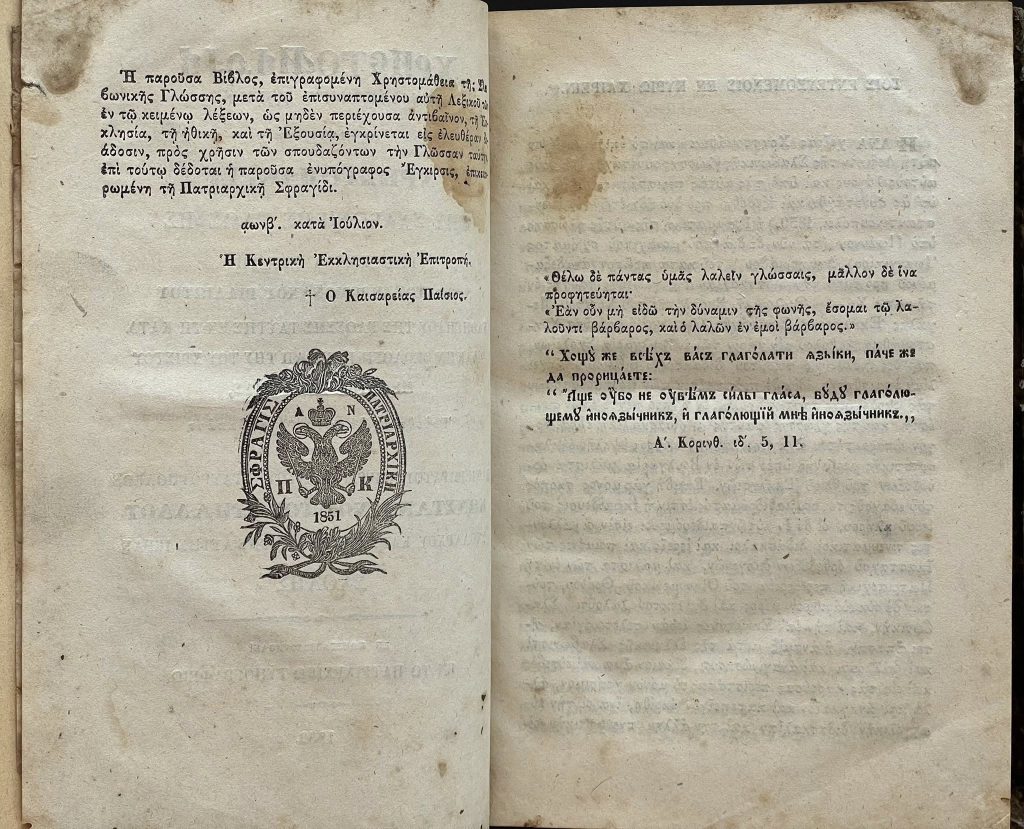 Ἡ παροῦσα Βίβλος, ἐπιγραφομένη Χρηστομάθεια τῆς
βωνικῆς Γλώσσης, μετὰ τοῦ ἐπισυναπτομένου αὐτῇ Λεξικοῦ
ἐν τῷ κειμένῳ λέξεων, ὡς μηδὲν περιέχουσα ἀντιβαῖνον, τῇ
κλησίᾳ, τῇ ἠθικῇ, καὶ τῇ Ἐξουσίᾳ, ἐγκρίνεται εἰς ἐλευθέραν
άδοσιν, πρὸς χρῆσιν τῶν σπουδαζόντων τὴν Γλῶσσαν
ἐπὶ τούτῳ δέδοται ἡ παροῦσα ἐνυπόγραφος Ἔγκρισις,
ρωμένη τῇ Πατριαρχικῇ Σφραγῖδι.
αωνβʹ. κατὰ Ἰούλιον.
Ἡ Κεντρικὴ Ἐκκλησιαστικὴ Ἐπιτροπή.
† Ὁ Καισαρείας Παΐσιος.
ΣΦΡΑΓΙΣ ΠΑΤΡΙΑΡΧΙΚΗ
Α Ν
Π Κ
1851
«Θέλω δὲ πάντας ὑμᾶς λαλεῖν γλώσσαις, μᾶλλον δὲ ἵνα
προφητεύητε·
«Ἐὰν οὖν μὴ εἰδῶ τὴν δύναμιν τῆς φωνῆς, ἔσομαι τῷ λα-
λοῦντι βάρβαρος, καὶ ὁ λαλῶν ἐν ἐμοὶ βάρβαρος.»
“Хощу же всѣхъ васъ глаголати ѧзыки, паче же
да прорицаете:
“Аще оубо не оувѣмъ силы гласа, буду глаголю-
щему иноязычникъ, и глаголющій мнѣ иноязычникъ.„
Αʹ. Κορινθ. ιδʹ. 5, 11.